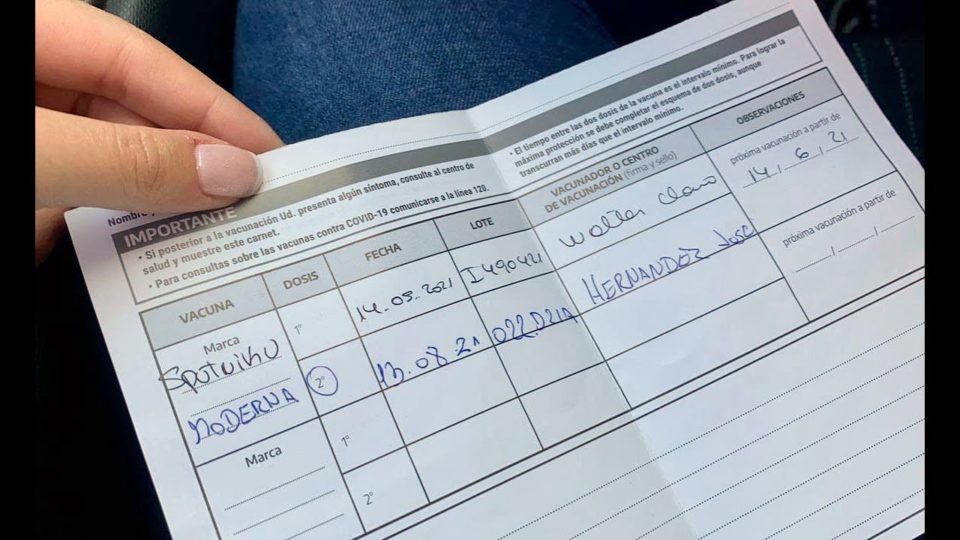 Nombre
IMPORTANTE
• Si posterior a la vacunación Ud. presenta algún síntoma, consulte al centro de
salud y muestre este carnet.
• Para consultas sobre las vacunas contra COVID-19 comunicarse a la línea 120.
• El tiempo entre las dos dosis de la vacuna es el intervalo mínimo. Para lograr la
máxima protección se debe completar el esquema de dos dosis, aunque
transcurran más días que el intervalo mínimo.
VACUNA DOSIS FECHA LOTE VACUNADOR O CENTRO
DE VACUNACIÓN (firma y sello) OBSERVACIONES
Marca
Sputnik V 1° 14.05.2021 I490421 Walter próxima vacunación a partir de
14, 6, 21
MODERNA 2° 13.08.21 022D21A HERNANDEZ José próxima vacunación a partir de
___/___/___
Marca
1°
2°